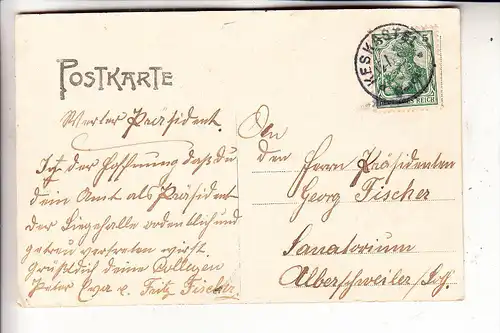 POSTKARTE
KESKASTEL
5
DEUTSCHES REICH
Werter Präsident.
In der Hoffnung daß du
dein Amt als Präsident
der Liegehalle ordentlich und
getreu vertreten wirst.
Grüßt dich deine Collegen
Peter Fritz Fischer
An
den Herrn Präsidenten
Georg Fischer
Sanatorium
Alberschweiler /Loth.